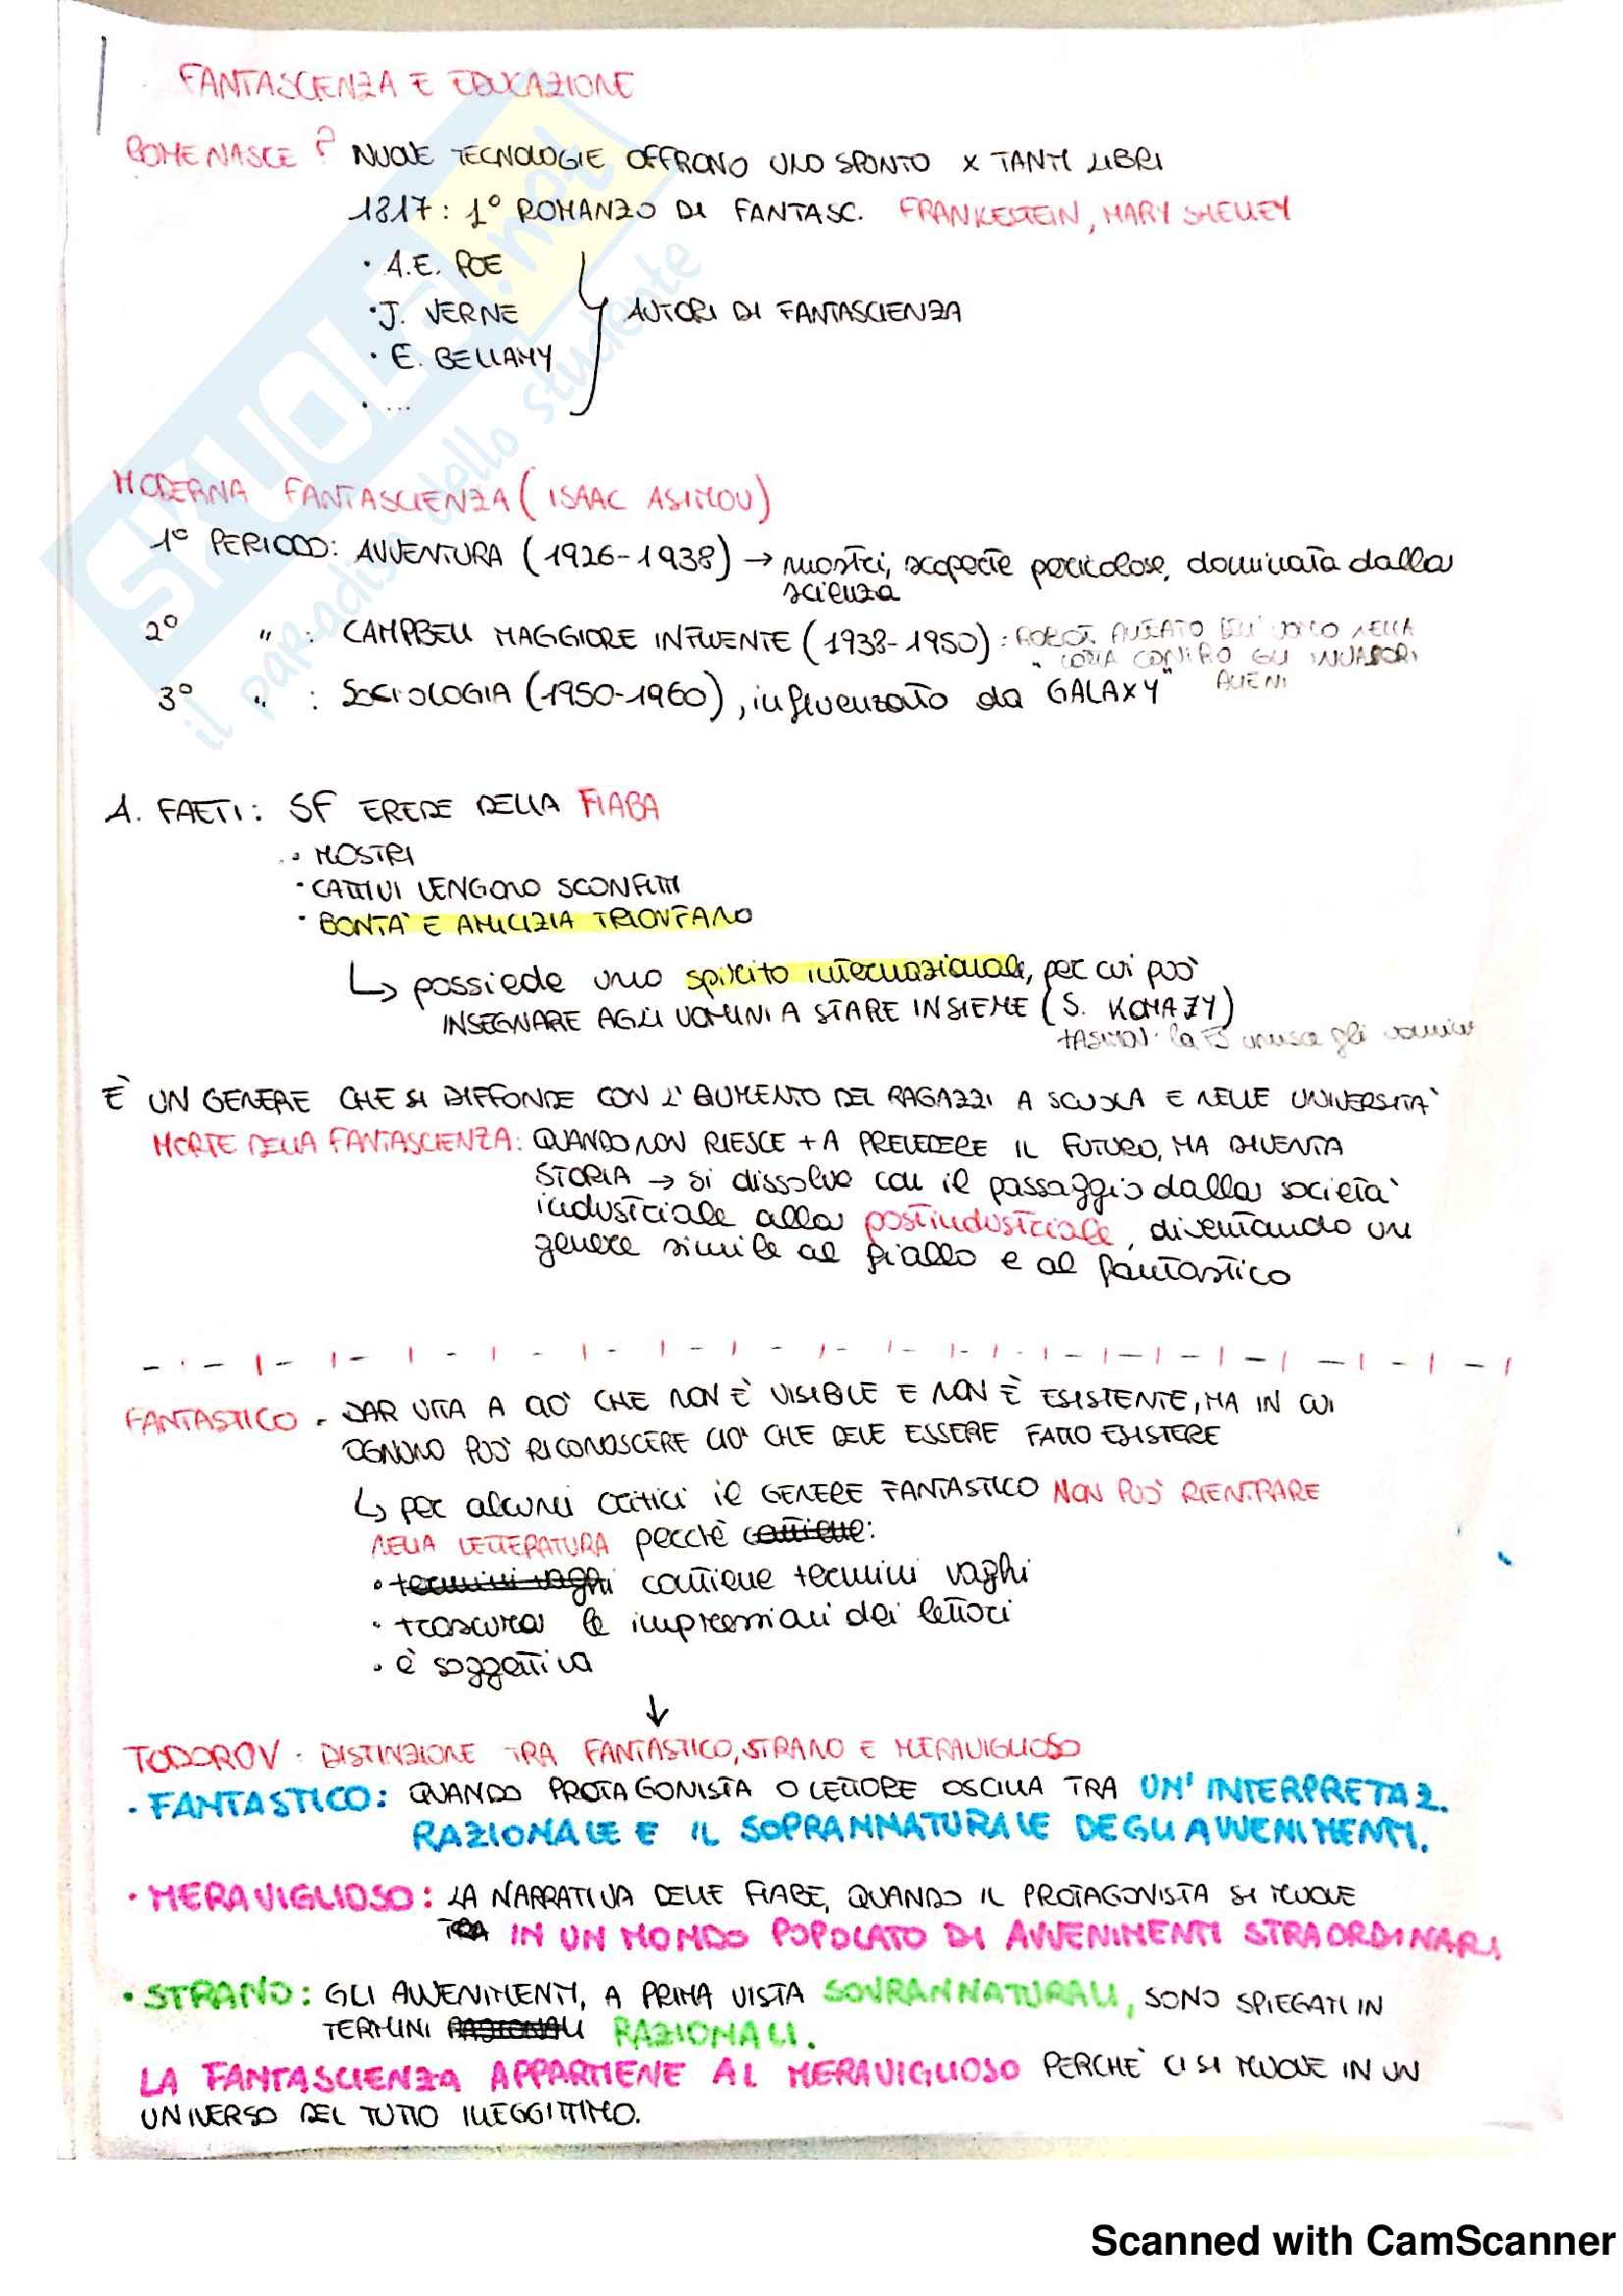 FANTASCIENZA E EDUCAZIONE
COME NASCE? NUOVE TECNOLOGIE OFFRONO UNO SPUNTO X TANTI LIBRI
1817: 1° ROMANZO DI FANTASC. FRANKESTEIN, MARY SHELLEY
· A.E. POE
· J. VERNE
AUTORI DI FANTASCIENZA
· E. BELLAMY
· ...
MODERNA FANTASCIENZA (ISAAC ASIMOV)
1° PERIODO: AVVENTURA (1926-1938) → mostri, scoperte pericolose, dominata dalla
scienza
2° " : CAMPBELL MAGGIORE INFLUENTE (1938-1950): ROBOT ALLEATO DELL'UOMO NELLA
LOTTA CONTRO GLI INVASORI
ALIENI
3° " : SOCIOLOGIA (1950-1960), influenzato da "GALAXY"
A. FAETI: SF EREDE DELLA FIABA
· MOSTRI
· CATTIVI VENGONO SCONFITTI
· BONTA' E AMICIZIA TRIONFANO
↳ possiede uno spirito internazionale, per cui può
INSEGNARE AGLI UOMINI A STARE INSIEME (S. KOMAZY)
+ASIMOV: la FS unisce gli uomini
È UN GENERE CHE SI DIFFONDE CON L'AUMENTO DEI RAGAZZI A SCUOLA E NELLE UNIVERSITA'
MORTE DELLA FANTASCIENZA: QUANDO NON RIESCE + A PREVEDERE IL FUTURO, MA DIVENTA
STORIA → si dissolve con il passaggio dalla società
industriale alla postindustriale, diventando un
genere simile al giallo e al fantastico
FANTASTICO - DAR VITA A CIO' CHE NON È VISIBILE E NON È ESISTENTE, MA IN CUI
OGNUNO PUO' RICONOSCERE CIO' CHE DEVE ESSERE FATTO ESISTERE
↳ per alcuni critici il GENERE FANTASTICO NON PUO' RIENTRARE
NELLA LETTERATURA perchè contiene:
· termini vaghi contiene termini vaghi
· trascura le impressioni dei lettori
· è soggettiva
↓
TODOROV: DISTINZIONE TRA FANTASTICO, STRANO E MERAVIGLIOSO
· FANTASTICO: QUANDO PROTAGONISTA O LETTORE OSCILLA TRA UN'INTERPRETAZ.
RAZIONALE E IL SOPRANNATURALE DEGLI AVVENIMENTI.
· MERAVIGLIOSO: LA NARRATIVA DELLE FIABE, QUANDO IL PROTAGONISTA SI MUOVE
TRA IN UN MONDO POPOLATO DI AVVENIMENTI STRAORDINARI
· STRANO: GLI AVVENIMENTI, A PRIMA VISTA SOVRANNATURALI, SONO SPIEGATI IN
TERMINI RAZIONALI RAZIONALI.
LA FANTASCIENZA APPARTIENE AL MERAVIGLIOSO PERCHE' CI SI MUOVE IN UN
UNIVERSO DEL TUTTO ILLEGGITTIMO.
SKUOLA.net
il paradiso dello studente
Scanned with CamScanner